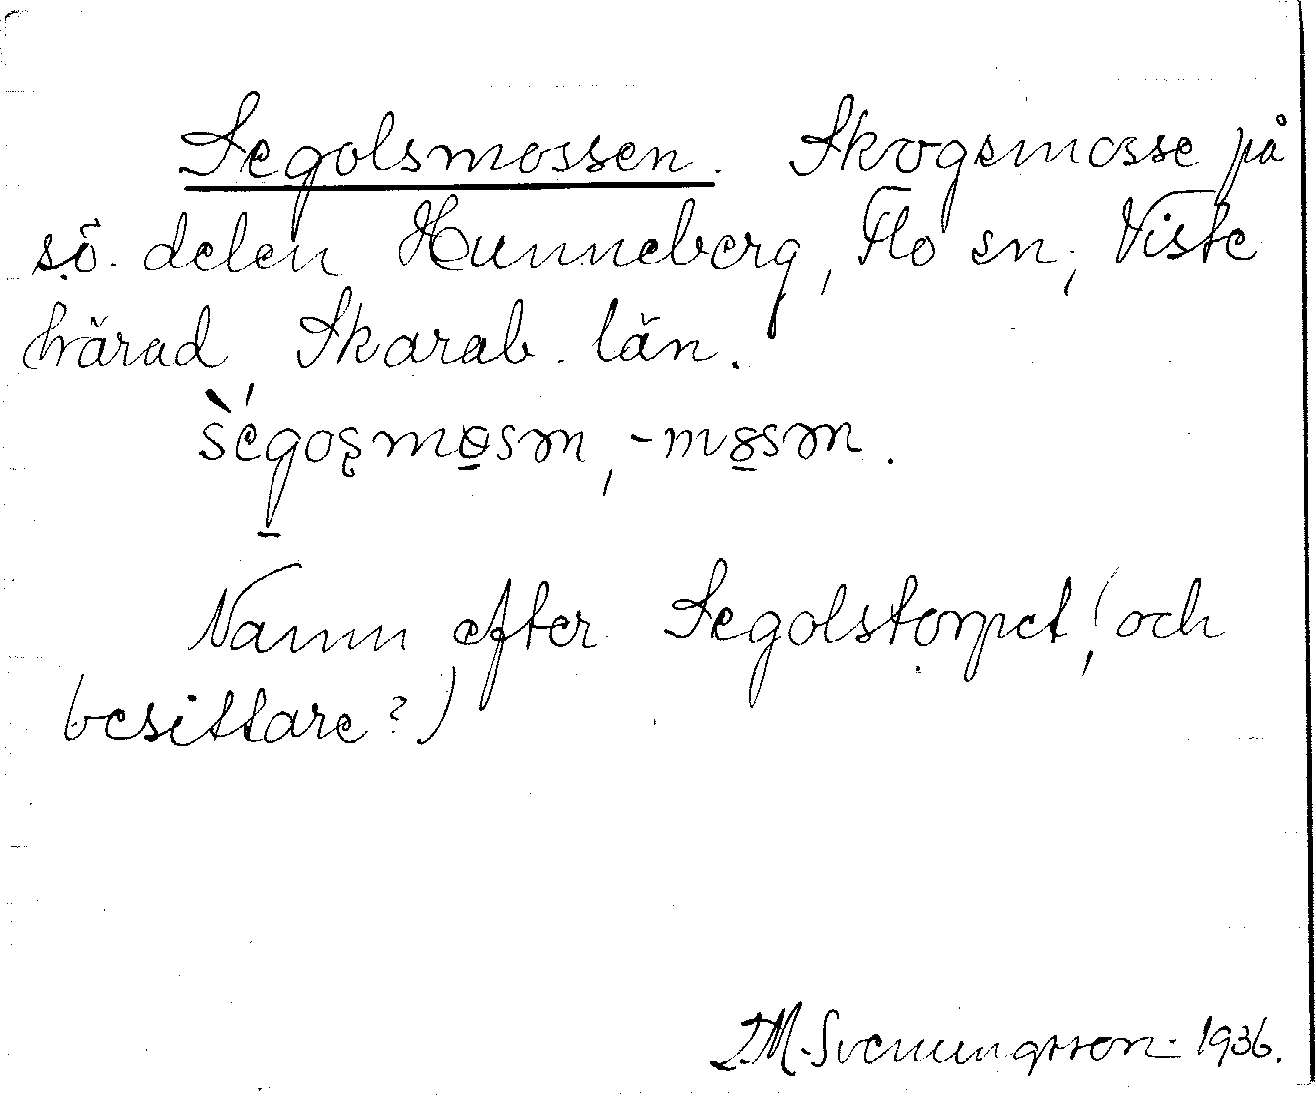 Segolsmossen. Skogsmosse på
sö. delen Hunneberg, Flo sn, Viste
härad, Skarab. län.
Namn efter Segolstorpet, (och
besittare?)
Svenungsson 1936.